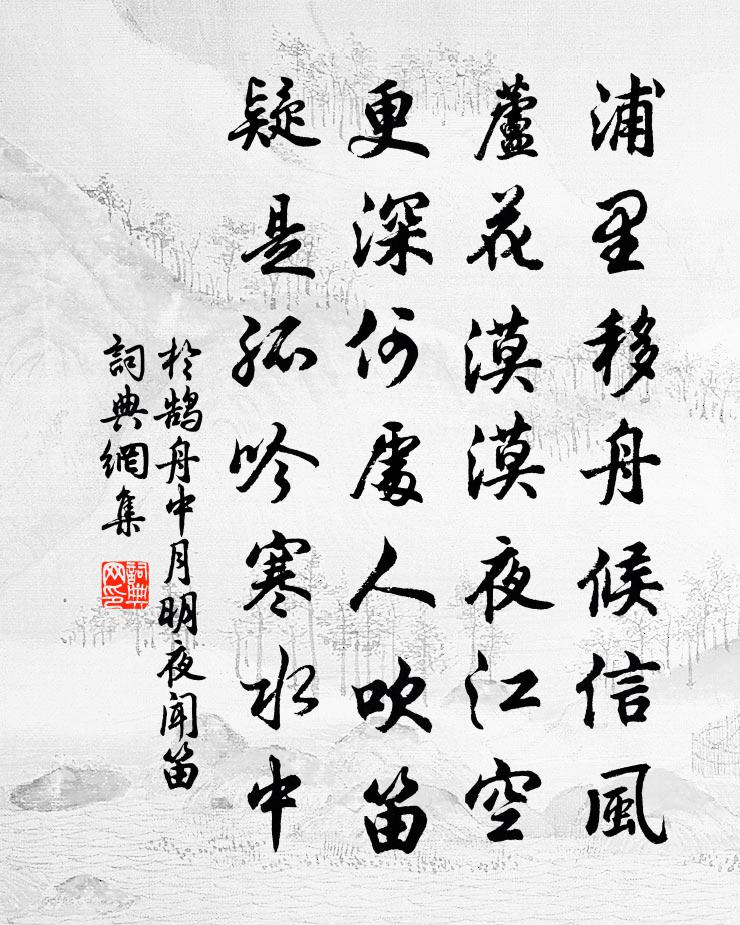 浦里移舟候信風
蘆花漠漠夜江空
更深何處人吹笛
疑是孤吟寒水中
於鵠舟中月明夜聞笛
詞典網集
詞典网印